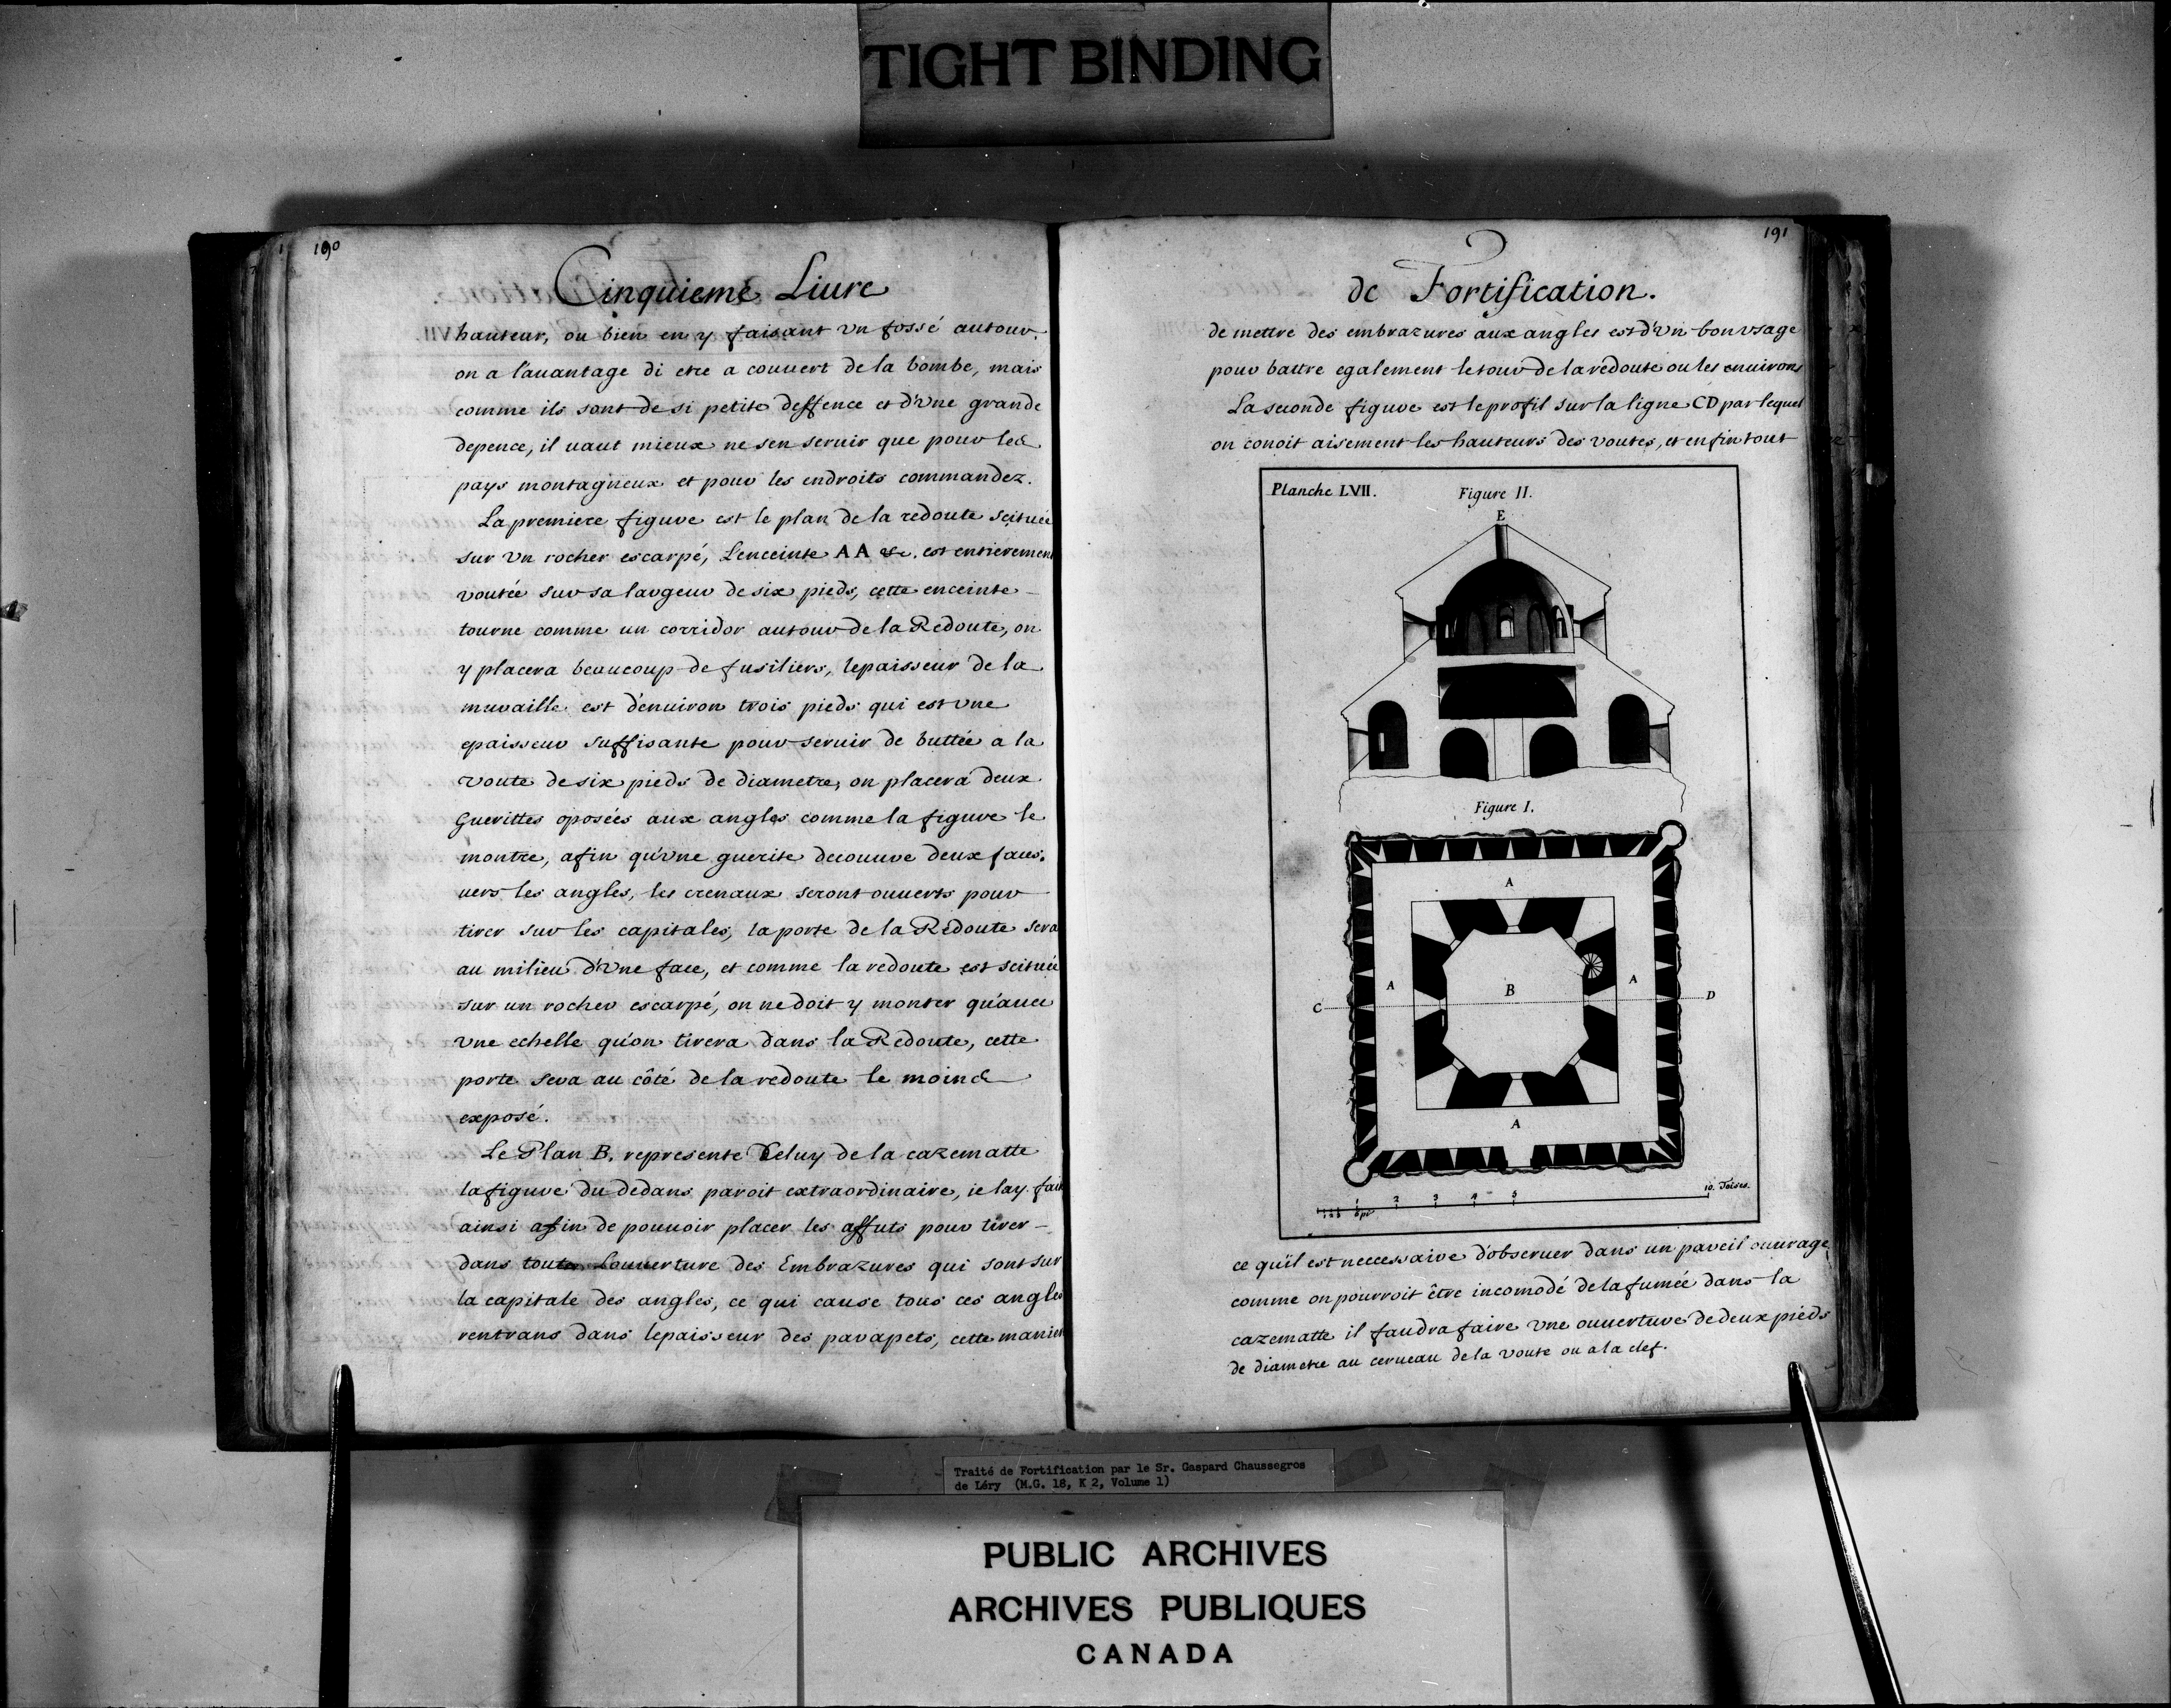 TIGHT BINDING
190
Cinquieme Liure
hauteur, ou bien en y faisant vn fossé autour.
on a l'auantage di etre a couuert de la bombe, mais
comme ils sont de si petite deffence et d'vne grande
depence, il uaut mieux ne sen seruir que pour les
pays montagneux et pour les endroits commandez.
La premiere figure est le plan de la redoute scituée
sur vn rocher escarpé, L'enceinte AA &c. est entierement
voutée sur sa largeur de six pieds, cette enceinte
tourne comme un corridor autour de la Redoute, on
y placera beaucoup de fusiliers, lepaisseur de la
muraille est d'enuiron trois pieds qui est vne
epaisseur suffisante pour seruir de buttée a la
voute de six pieds de diametre, on placera deux
Guerittes oposées aux angles comme la figure le
montre, afin qu'vne guerite decouure deux faces.
uers les angles, les crenaux seront ouuerts pour
tirer sur les capitales, la porte de la Redoute sera
au milieu d'vne face, et comme la redoute est scituée
sur un rocher escarpé, on ne doit y monter qu'auec
vne echelle qu'on tirera dans la Redoute, cette
porte sera au côté de la redoute le moins
exposé.
Le Plan B. represente Celuy de la cazematte
la figure du dedans paroit extraordinaire, ie lay fait
ainsi afin de pouuoir placer les affuts pour tirer
dans toute Louuerture des Embrazures qui sont sur
la capitale des angles, ce qui cause tous ces angles
rentrans dans lepaisseur des parapets, cette manier
191
de Fortification.
de mettre des embrazures aux angles est d'vn bon vsage
pour battre egalement le tour de la redoute ou les enuirons
La seconde figure est le profil sur la ligne CD par lequel
on conoit aisement les hauteurs des voutes, et enfin tout
Planche LVII.
Figure II.
E
Figure I.
A
A
B
A
C
D
A
1 2 3 4 5 10. Toises.
ce qu'il est neccessaire d'obseruer dans un pareil ouurage,
comme on pourroit être incomodé de la fumée dans la
cazematte il faudra faire vne ouuerture de deux pieds
de diametre au cerueau de la voute ou a la clef.
Traité de Fortification par le Sr. Gaspard Chaussegros
de Léry (M.G. 18, K 2, Volume 1)
PUBLIC ARCHIVES
ARCHIVES PUBLIQUES
CANADA